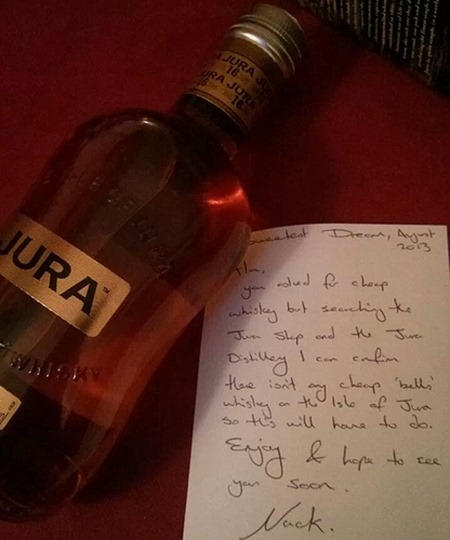 JURA JURA
16 16
JURA JURA
16 16
ISLE OF JURA
JURA™
WHISKY
Sweetest Dream, August
2013
you asked for cheap
whiskey but searching the
Jura Shop and the Jura
Distillery I can confirm
there isn't any cheap 'bells'
whiskey on the Isle of Jura
so this will have to do.
Enjoy & hope to see
you soon.